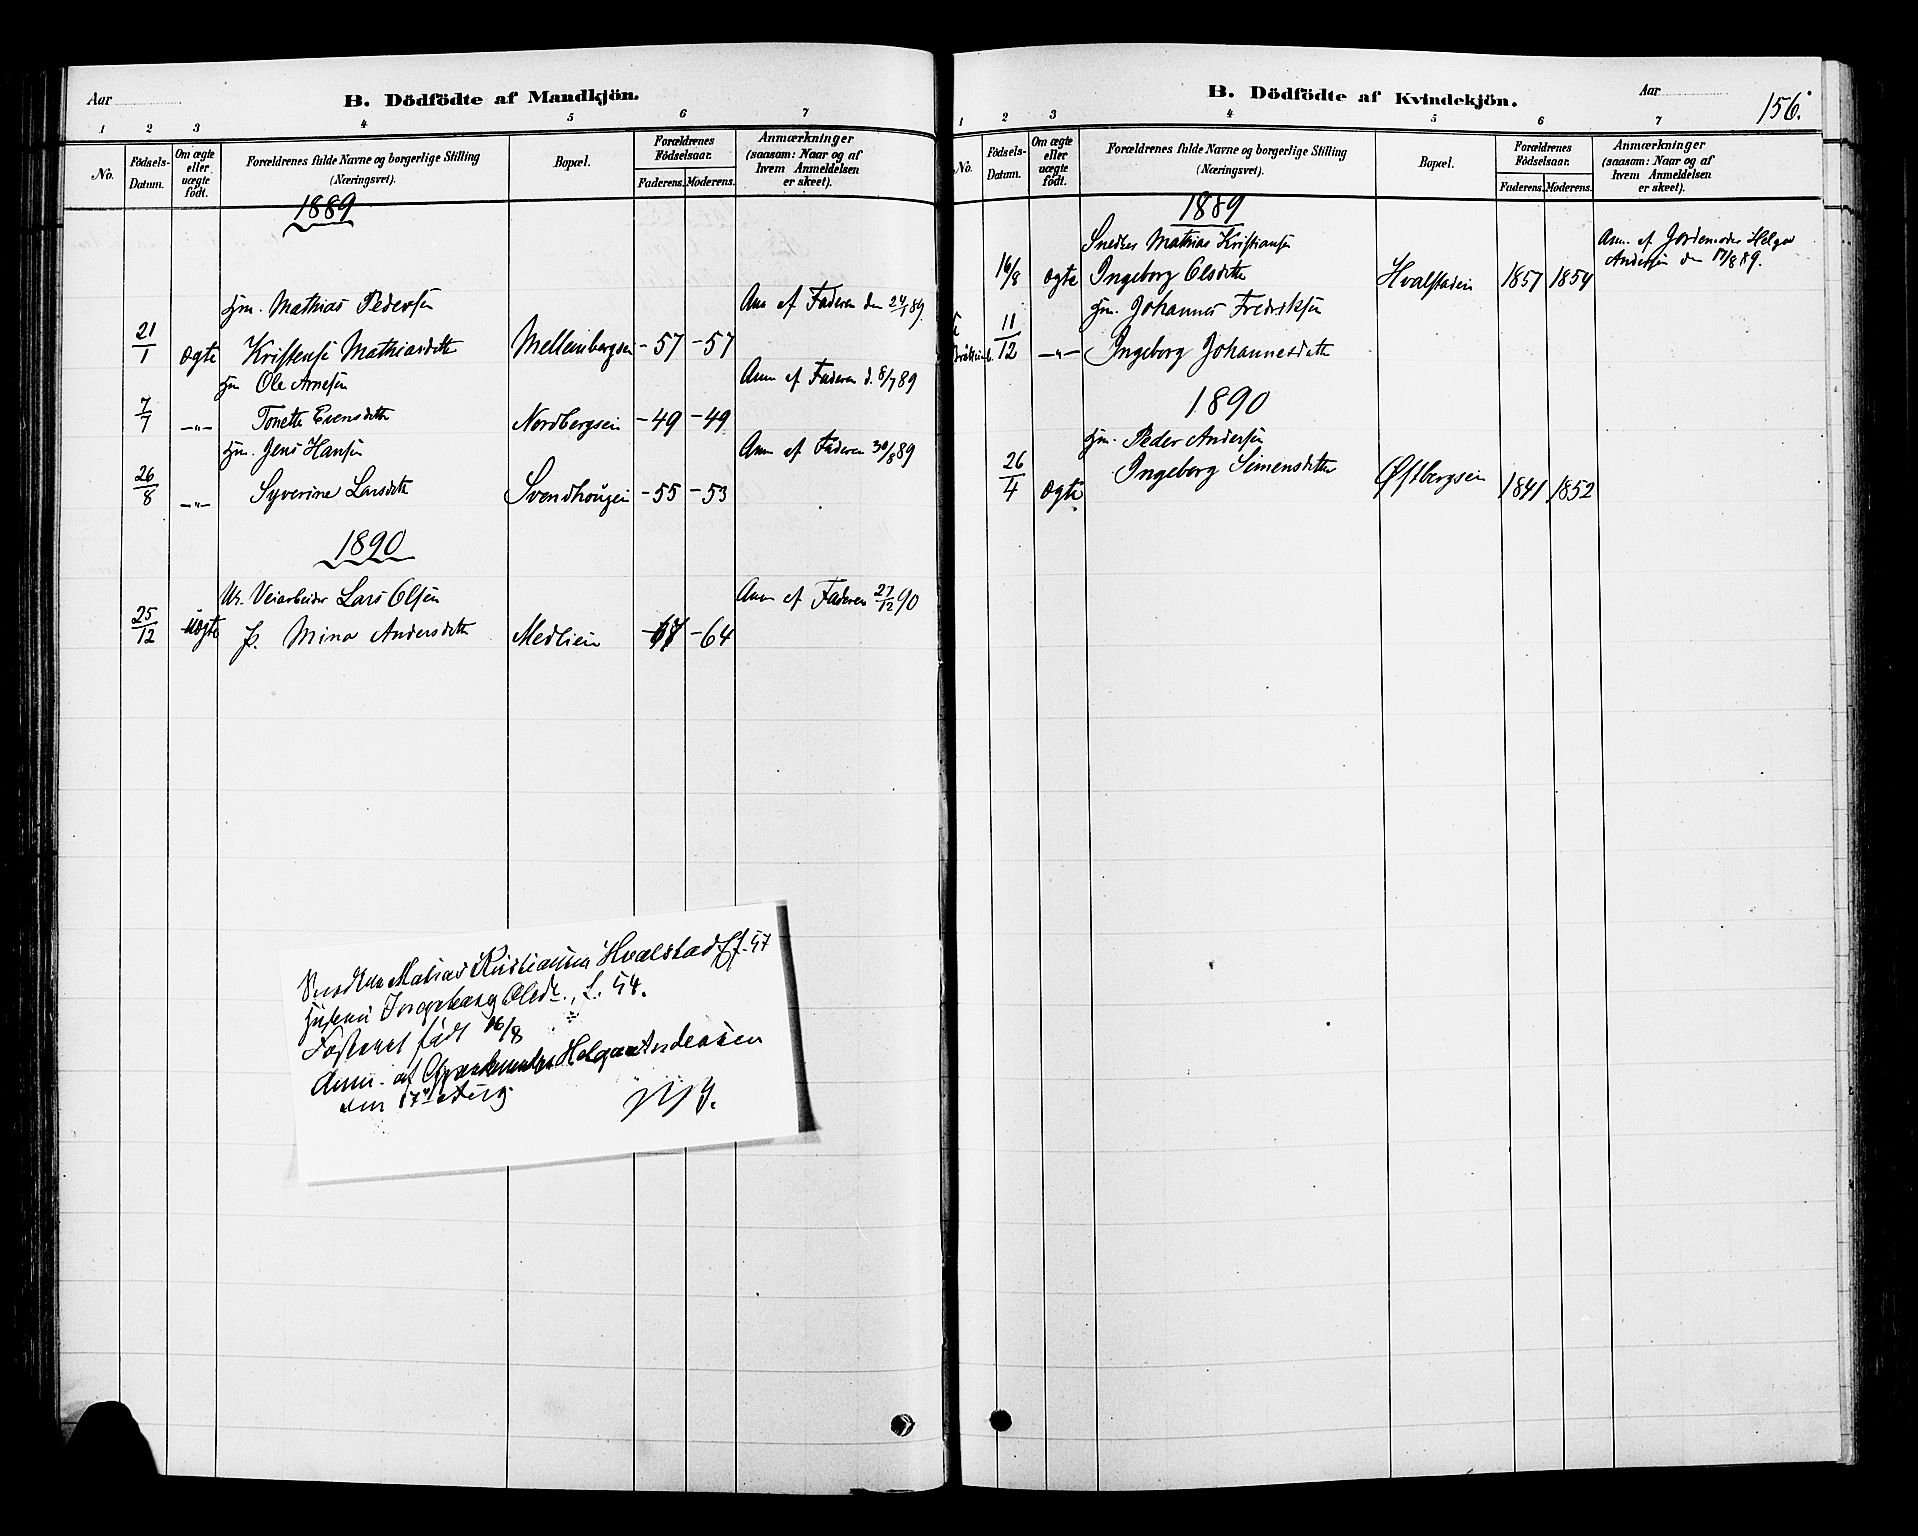 Aar
B. Dödfödte af Mandkjön.
1 2 3 4 5 6 7
No.
Födsels-Datum.
Om ægte eller uægte født.
Forældrenes fulde Navne og borgerlige Stilling (Næringsvei).
Bopæl.
Forældrenes Födselsaar.
Faderens. Moderens.
Anmærkninger (saasom: Naar og af hvem Anmeldelsen er skeet).
1889
Gm. Mathias Pedersen Anm af Faderen den 24/1 89.
21/1 ægte Kristense Mathiasdatter Mellembergsei -57 -57
Gm Ole Arnesen Anm af Faderen d. 8/7 89
7/7 -"- Tonette Evensdatter Nordbergsei -49 -49
Gm. Jens Hansen Anm af Faderen 30/8 89
26/8 -"- Syverine Larsdatter Svendhougei -55 -53
1890
Uk. Veiarbeider Lars Olsen Anm af Faderen 27/12 90
25/12 uægte P. Mina Andersdatter Medliein -67 -64
Snedker Matias Kristiansen Hvalstad Ef. 57
Hustru Ingeborg Olsdt., f. 54.
Fosteret født 16/8
Anm. af Gjordemoder Helga Andersen
den 17de Aug
B. Dödfödte af Kvindekjön.
Aar
156.
1 2 3 4 5 6 7
No.
Födsels-Datum.
Om ægte eller uægte födt.
Forældrenes fulde Navne og borgerlige Stilling (Næringsvei).
Bopæl.
Forældrenes Födselsaar.
Faderens. Moderens.
Anmærkninger (saasom: Naar og af hvem Anmeldelsen er skeet).
1889
Snedker Mathias Kristiansen Anm. af Jordemoder Helga
16/8 ægte Ingeborg Olsdatter Hvalstadein 1857 1854 Andersen den 17/8 89.
Gm. Johannes Fredriksen
11/12 -"- Ingeborg Johannesdatter
1890
Gm. Peder Andersen
26/4 ægte Ingeborg Simensdatter Østbergsein 1841 1852